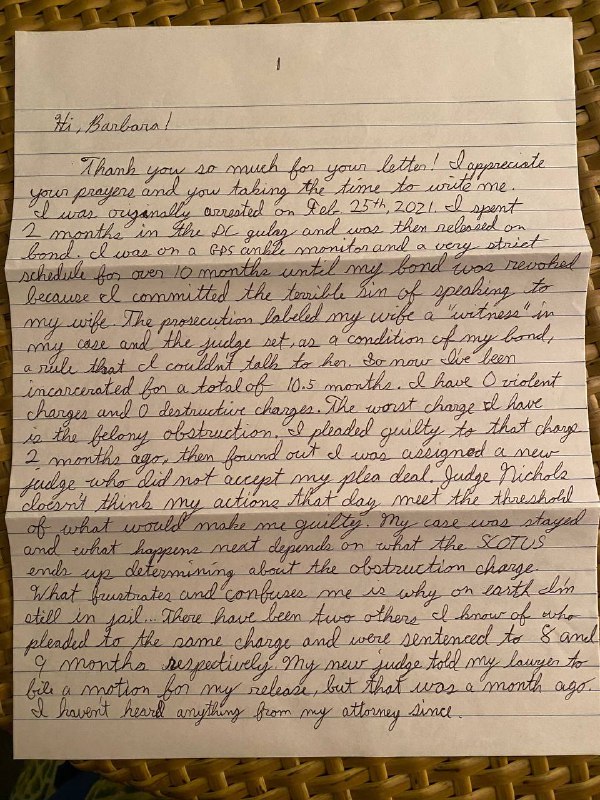 1
Hi, Barbara!
Thank you so much for your letter! I appreciate
your prayers and you taking the time to write me.
I was originally arrested on Feb. 25th, 2021. I spent
2 months in the DC gulag and was then released on
bond. I was on a GPS ankle monitor and a very strict
schedule for over 10 months until my bond was revoked
because I committed the terrible sin of speaking to
my wife. The prosecution labeled my wife a "witness" in
my case and the judge set, as a condition of my bond,
a rule that I couldn't talk to her. So now I've been
incarcerated for a total of 10.5 months. I have 0 violent
charges and 0 destructive charges. The worst charge I have
is the felony obstruction. I pleaded guilty to that charge
2 months ago, then found out I was assigned a new
judge who did not accept my plea deal. Judge Nichols
doesn't think my actions that day meet the threshold
of what would make me guilty. My case was stayed
and what happens next depends on what the SCOTUS
ends up determining about the obstruction charge.
What frustrates and confuses me is why on earth I'm
still in jail... There have been two others I know of who
pleaded to the same charge and were sentenced to 8 and
9 months respectively. My new judge told my lawyer to
file a motion for my release, but that was a month ago.
I haven't heard anything from my attorney since.